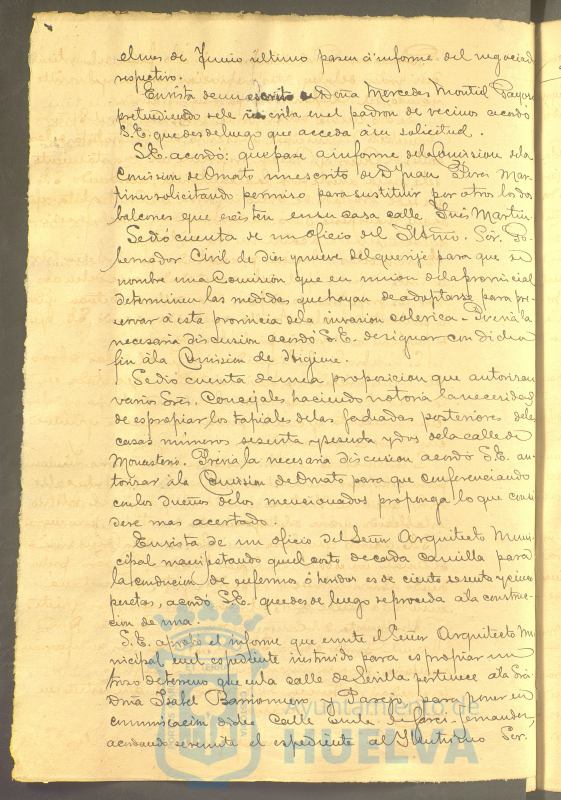 el mes de Junio último pasen á informe del negociado
respectivo.
En vista de un escrito de Doña Mercedes Montiel
pretendiendo se le inscriba en el padron de vecinos acordó
S.E. que desde luego que acceda á su solicitud.
S.E. acordó: que pase a informe de la Comision de la
Comision de Ornato un escrito de D. Juan Perez Mar-
tinez solicitando permiso para sustituir por otros los dos
balcones que existen en su casa calle
Se dió cuenta de un oficio del Iltmo. Sor. Go-
bernador Civil de diez y nueve del que rije para que se
nombre una Comision que en union de la provincial
determinen las medidas que hayan de adoptarse para pre-
servar á esta provincia de la invasion colerica. Previa la
necesaria discusion acordó S.E. designar con dicho
fin á la Comision de Higiene.
Se dió cuenta de una proposicion que autorizan
varios Sres. Concejales haciendo notoria la necesidad
de espropiar los tapiales de las fachadas posteriores de las
casas números sesenta y sesenta y dos de la calle de
Monasterio. Previa la necesaria discusion acordó S.E. au-
torizar á la Comision de Ornato para que conferenciando
con los dueños de los mencionados proponga lo que consi-
dere mas acertado.
En vista de un oficio del Señor Arquitecto Muni-
cipal manifestando que el costo de cada camilla para
la conducion de enfermos ó heridos es de ciento sesenta y cinco
pesetas, acordó S.E. que desde luego se proceda a la construc-
cion de una.
S.E. aprobó el informe que emite el Señor Arquitecto Mu-
nicipal en el espediente instruido para espropiar un
trozo de terreno que en la calle de Sevilla pertenece a la Sra
Doña Isabel Barromero y para poner en
comunicacion dicha calle
acordando se remita el espediente al Ilustrisimo Sor.
Ayuntamiento de
HUELVA